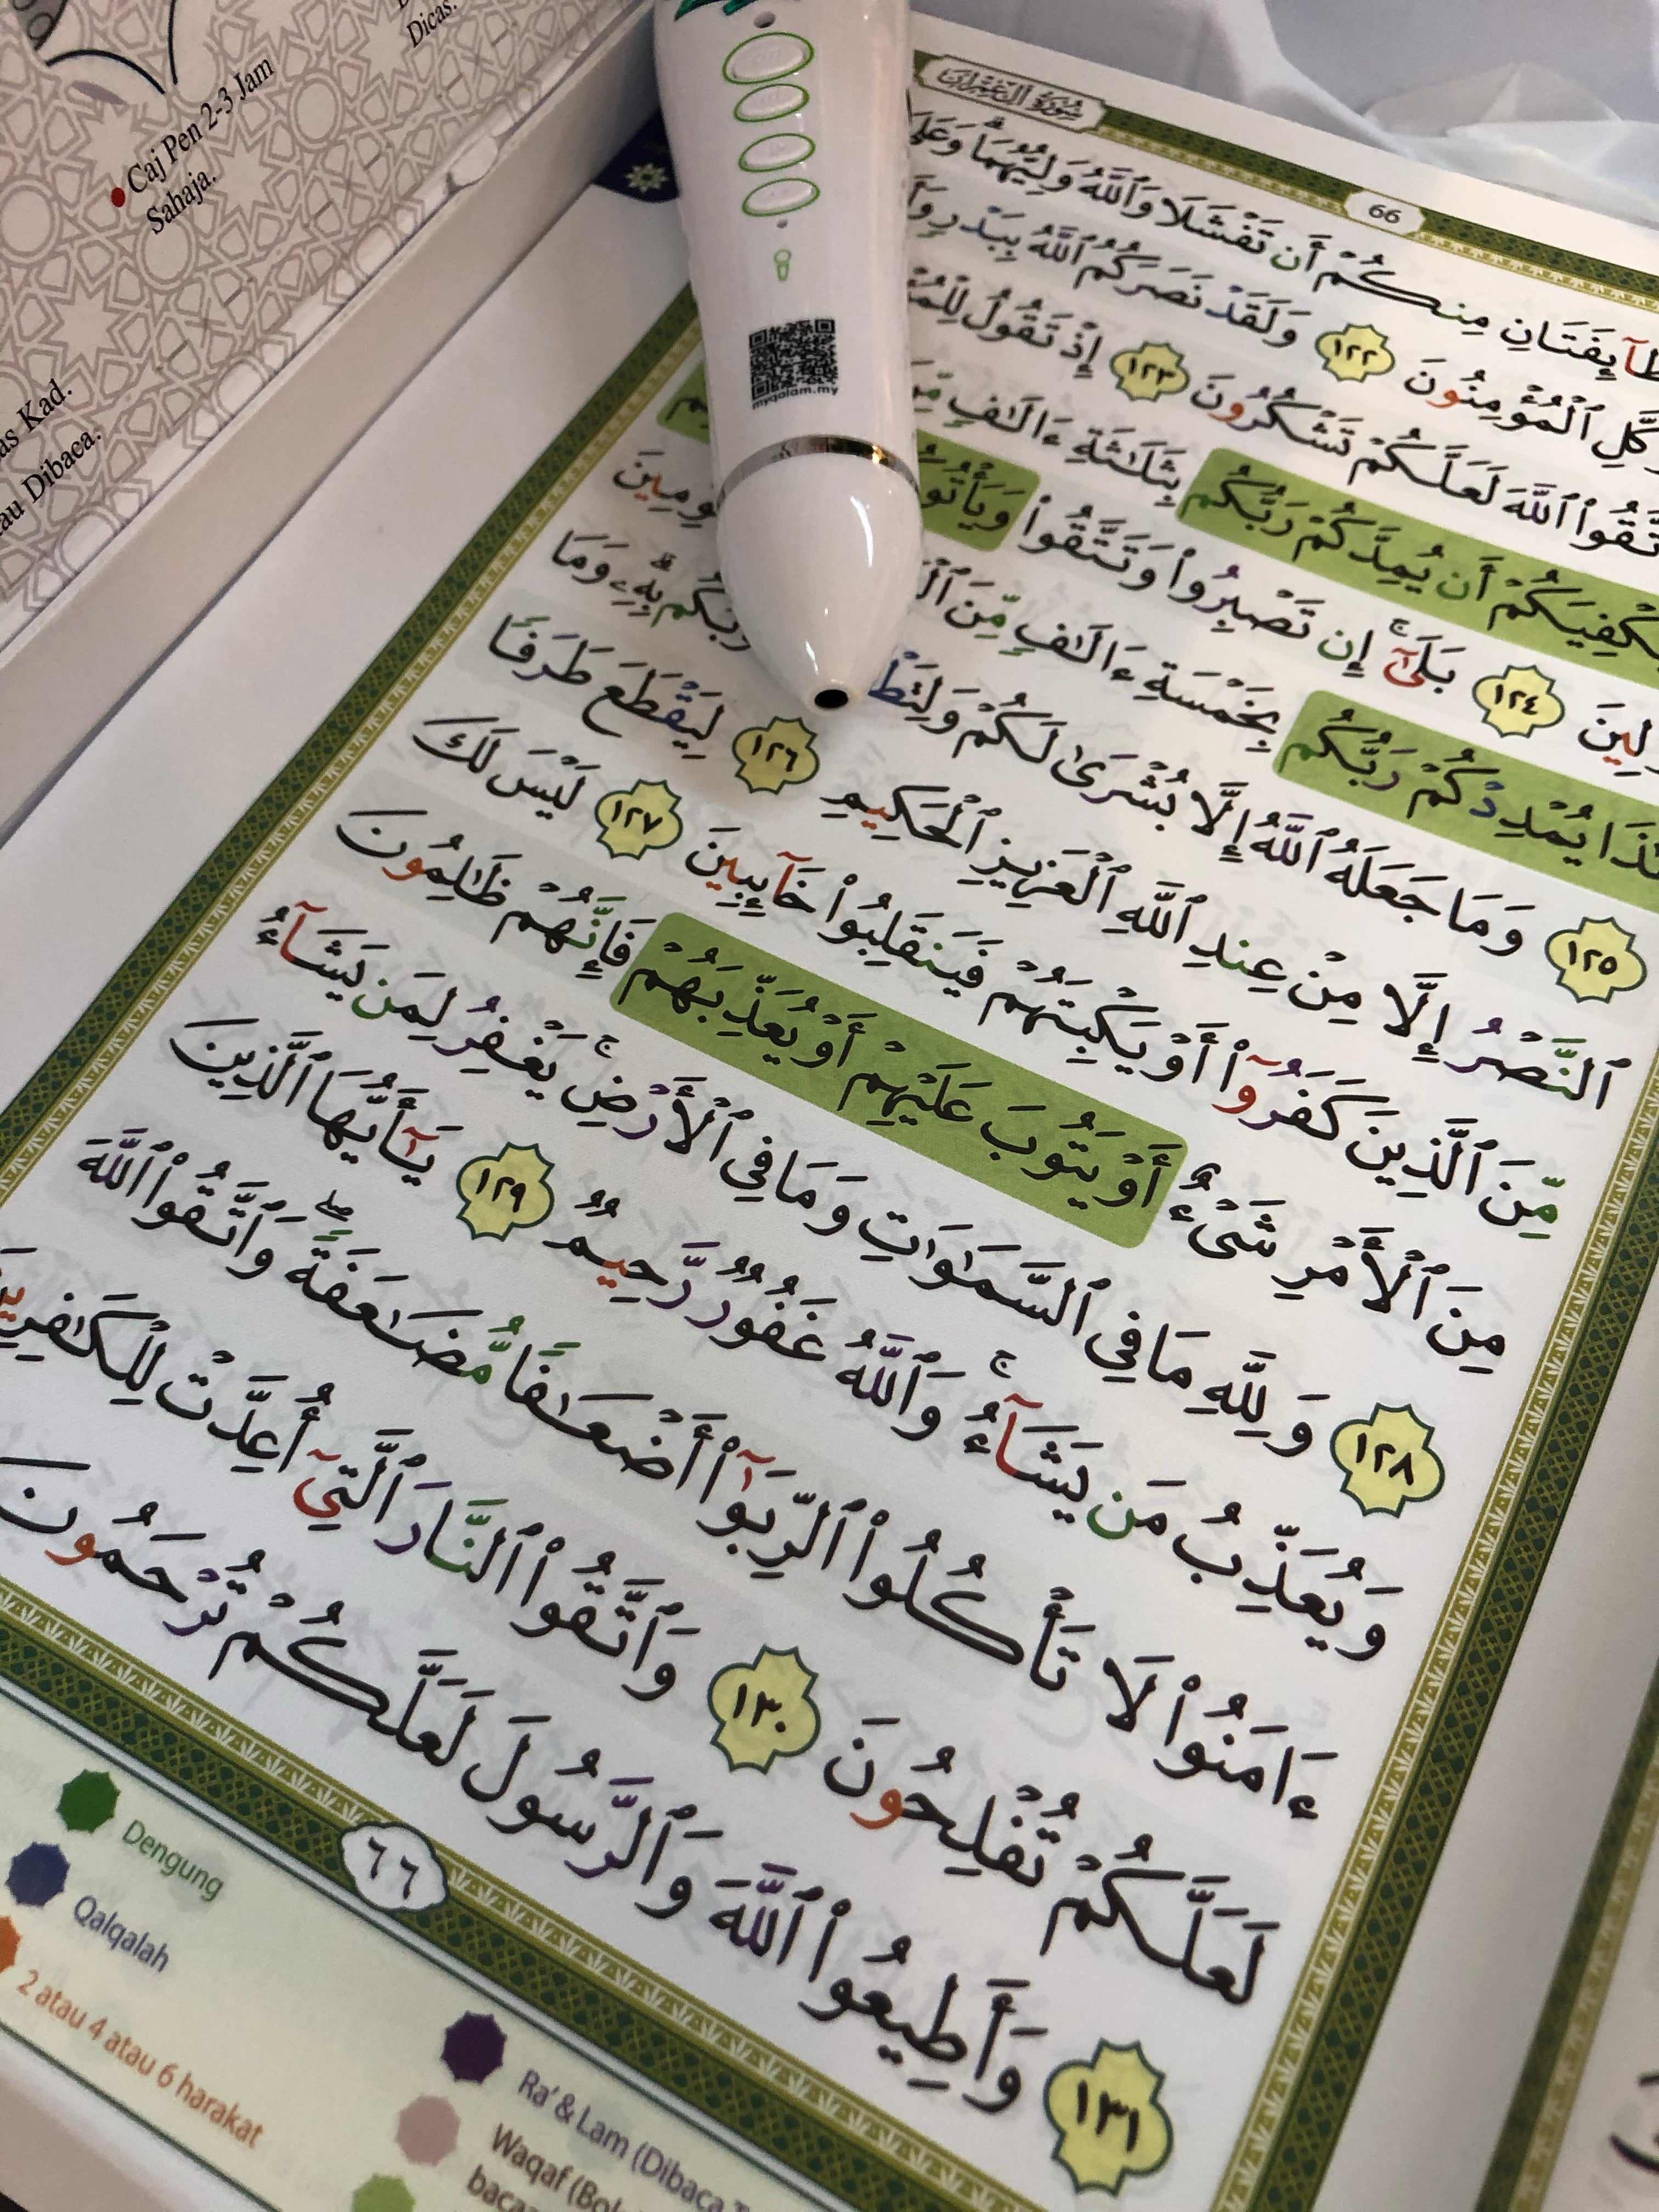 Dicas.
Caj Pen 2-3 Jam
Sahaja.
as Kad.
au Dibaca.
myqalam.my
سُورَةُ آلِ عِمْرَان
66
طَّآئِفَتَانِ مِنكُمْ أَن تَفْشَلَا وَٱللَّهُ وَلِيُّهُمَا ۗ وَعَلَى
كَّلِ ٱلْمُؤْمِنُونَ ١٢٢ وَلَقَدْ نَصَرَكُمُ ٱللَّهُ بِبَدْرٍ
تَّقُوا۟ ٱللَّهَ لَعَلَّكُمْ تَشْكُرُونَ ١٢٣ إِذْ تَقُولُ
كْفِيَكُمْ أَن يُمِدَّكُمْ رَبُّكُم بِثَلَـٰثَةِ ءَالَـٰفٍ
لِينَ ١٢٤ بَلَىٰٓ ۚ إِن تَصْبِرُوا۟ وَتَتَّقُوا۟
ـٰذَا يُمْدِدْكُمْ رَبُّكُم بِخَمْسَةِ ءَالَـٰفٍ مِّنَ
١٢٥ وَمَا جَعَلَهُ ٱللَّهُ إِلَّا بُشْرَىٰ لَكُمْ بِهِۦ ۗ وَمَا
ٱلنَّصْرُ إِلَّا مِنْ عِندِ ٱللَّهِ ٱلْعَزِيزِ ٱلْحَكِيمِ ١٢٦ لِيَقْطَعَ طَرَفًا
مِّنَ ٱلَّذِينَ كَفَرُوٓا۟ أَوْ يَكْبِتَهُمْ فَيَنقَلِبُوا۟ خَآئِبِينَ ١٢٧ لَيْسَ لَكَ
مِنَ ٱلْأَمْرِ شَىْءٌ أَوْ يَتُوبَ عَلَيْهِمْ أَوْ يُعَذِّبَهُمْ فَإِنَّهُمْ ظَـٰلِمُونَ
١٢٨ وَلِلَّهِ مَا فِى ٱلسَّمَـٰوَٰتِ وَمَا فِى ٱلْأَرْضِ ۚ يَغْفِرُ لِمَن يَشَآءُ
وَيُعَذِّبُ مَن يَشَآءُ ۚ وَٱللَّهُ غَفُورٌ رَّحِيمٌ ١٢٩ يَـٰٓأَيُّهَا ٱلَّذِينَ
ءَامَنُوا۟ لَا تَأْكُلُوا۟ ٱلرِّبَوٰٓا۟ أَضْعَـٰفًا مُّضَـٰعَفَةً ۖ وَٱتَّقُوا۟ ٱللَّهَ
لَعَلَّكُمْ تُفْلِحُونَ ١٣٠ وَٱتَّقُوا۟ ٱلنَّارَ ٱلَّتِىٓ أُعِدَّتْ لِلْكَـٰفِرِينَ
١٣١ وَأَطِيعُوا۟ ٱللَّهَ وَٱلرَّسُولَ لَعَلَّكُمْ تُرْحَمُونَ
٦٦
Dengung
Qalqalah
2 atau 4 atau 6 harakat
Ra' & Lam (Dibaca
Waqaf